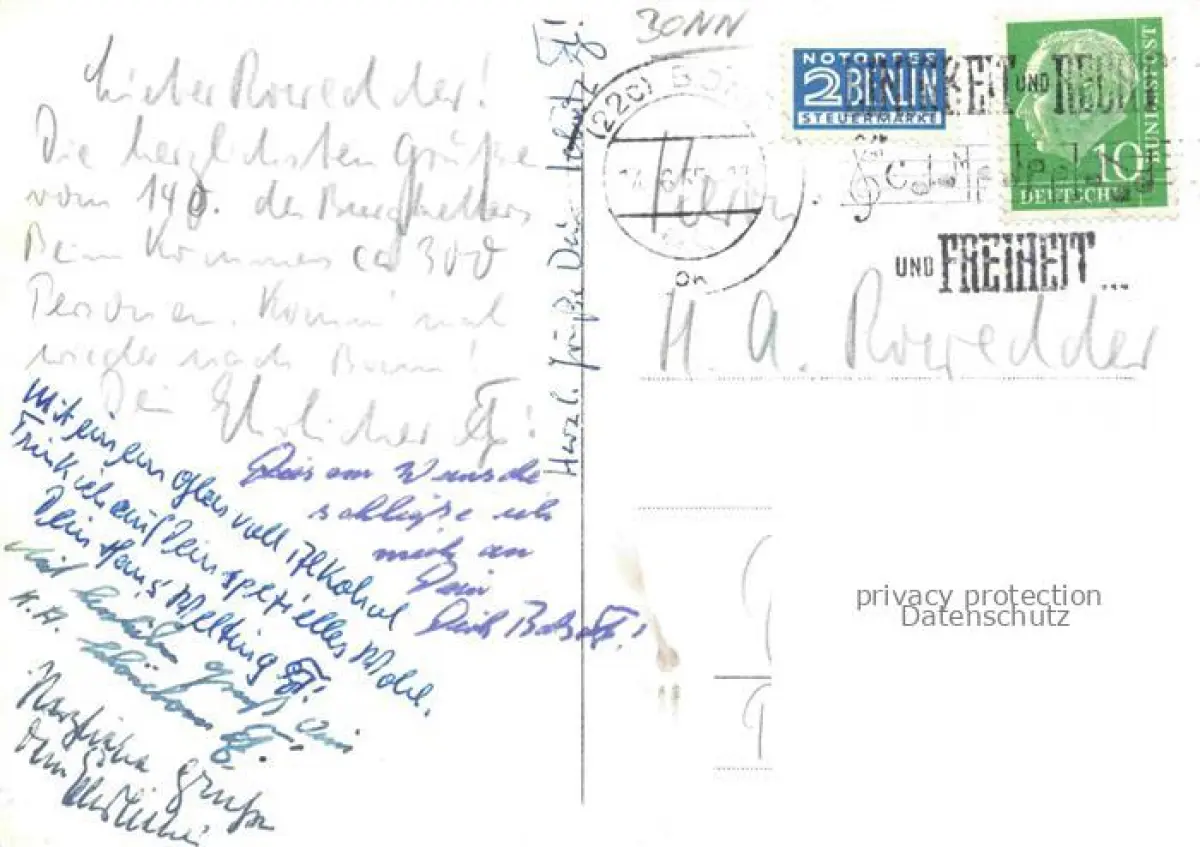 Lieber Rowedder!
Die herzlichsten Grüße
vom 140. des Burgkellers
Beim Kommers ca 300
Personen. Komm mal
wieder nach Bonn!
Dein Ehrlicher
Mit einem Glas voll Alkohol
Trink ich auf Dein spezielles Wohl.
Dein Hans Welting
Diesem Wunsche
schließe ich
mich an
Dein
Mit
Gruß Dein
H. H.
Herzliche Grüße
Dein
Herzl. Grüße Dein
BONN
NOTOPFER
2 BERLIN
STEUERMARKE
(22c) BONN
EINIGKEIT UND RECHT
UND FREIHEIT...
10
DEUTSCHE
BUNDESPOST
Herrn.
H. A. Rowedder
privacy protection
Datenschutz